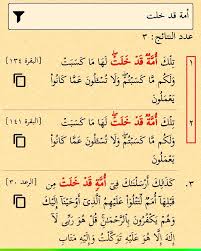 أمة قد خلت
عدد النتائج: ٣
١. تِلْكَ أُمَّةٌ قَدْ خَلَتْ ۖ لَهَا مَا كَسَبَتْ [البقرة ١٣٤]
وَلَكُم مَّا كَسَبْتُمْ ۖ وَلَا تُسْأَلُونَ عَمَّا كَانُوا
يَعْمَلُونَ
٢. تِلْكَ أُمَّةٌ قَدْ خَلَتْ ۖ لَهَا مَا كَسَبَتْ [البقرة ١٤١]
وَلَكُم مَّا كَسَبْتُمْ ۖ وَلَا تُسْأَلُونَ عَمَّا كَانُوا
يَعْمَلُونَ
٣. كَذَٰلِكَ أَرْسَلْنَاكَ فِي أُمَّةٍ قَدْ خَلَتْ مِن [الرعد ٣٠]
قَبْلِهَا أُمَمٌ لِّتَتْلُوَ عَلَيْهِمُ الَّذِي أَوْحَيْنَا إِلَيْكَ
وَهُمْ يَكْفُرُونَ بِالرَّحْمَٰنِ ۚ قُلْ هُوَ رَبِّي لَا
إِلَٰهَ إِلَّا هُوَ عَلَيْهِ تَوَكَّلْتُ وَإِلَيْهِ مَتَابِ